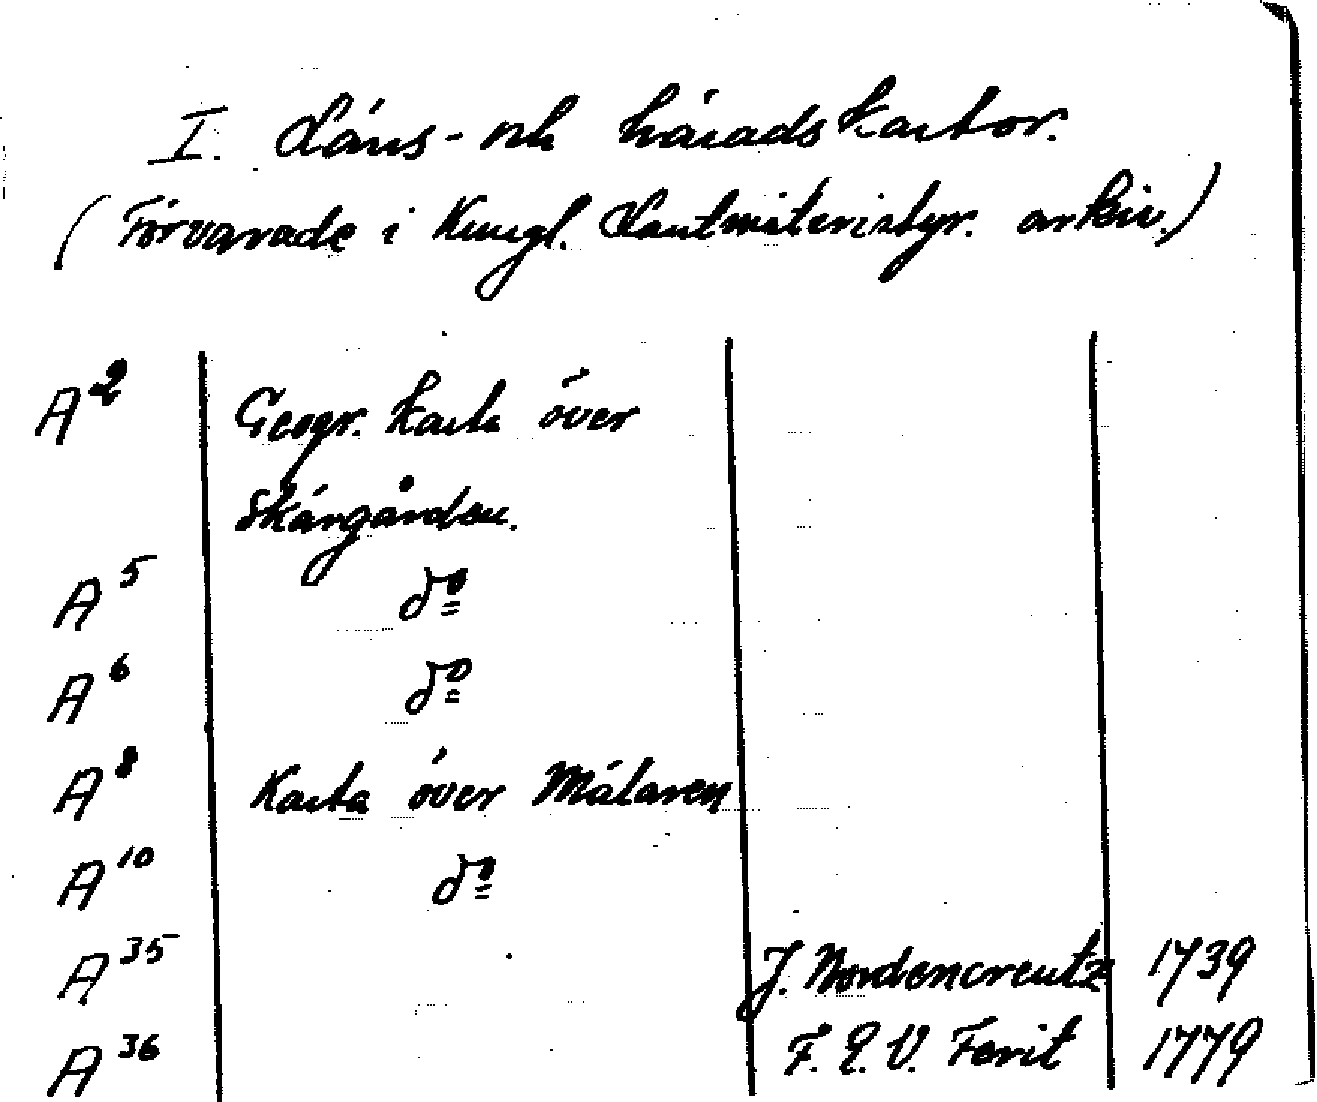 I. Läns- och häradskartor.
(Förvarade i Kungl. Lantmäteristyr. arkiv.)
A² Geogr. karta över
Skärgården.
A⁵ dº
A⁶ dº
A⁸ Karta över Mälaren
A¹⁰ dº
A³⁵ J. Nordencreutz 1739
A³⁶ F. E. V. 1779